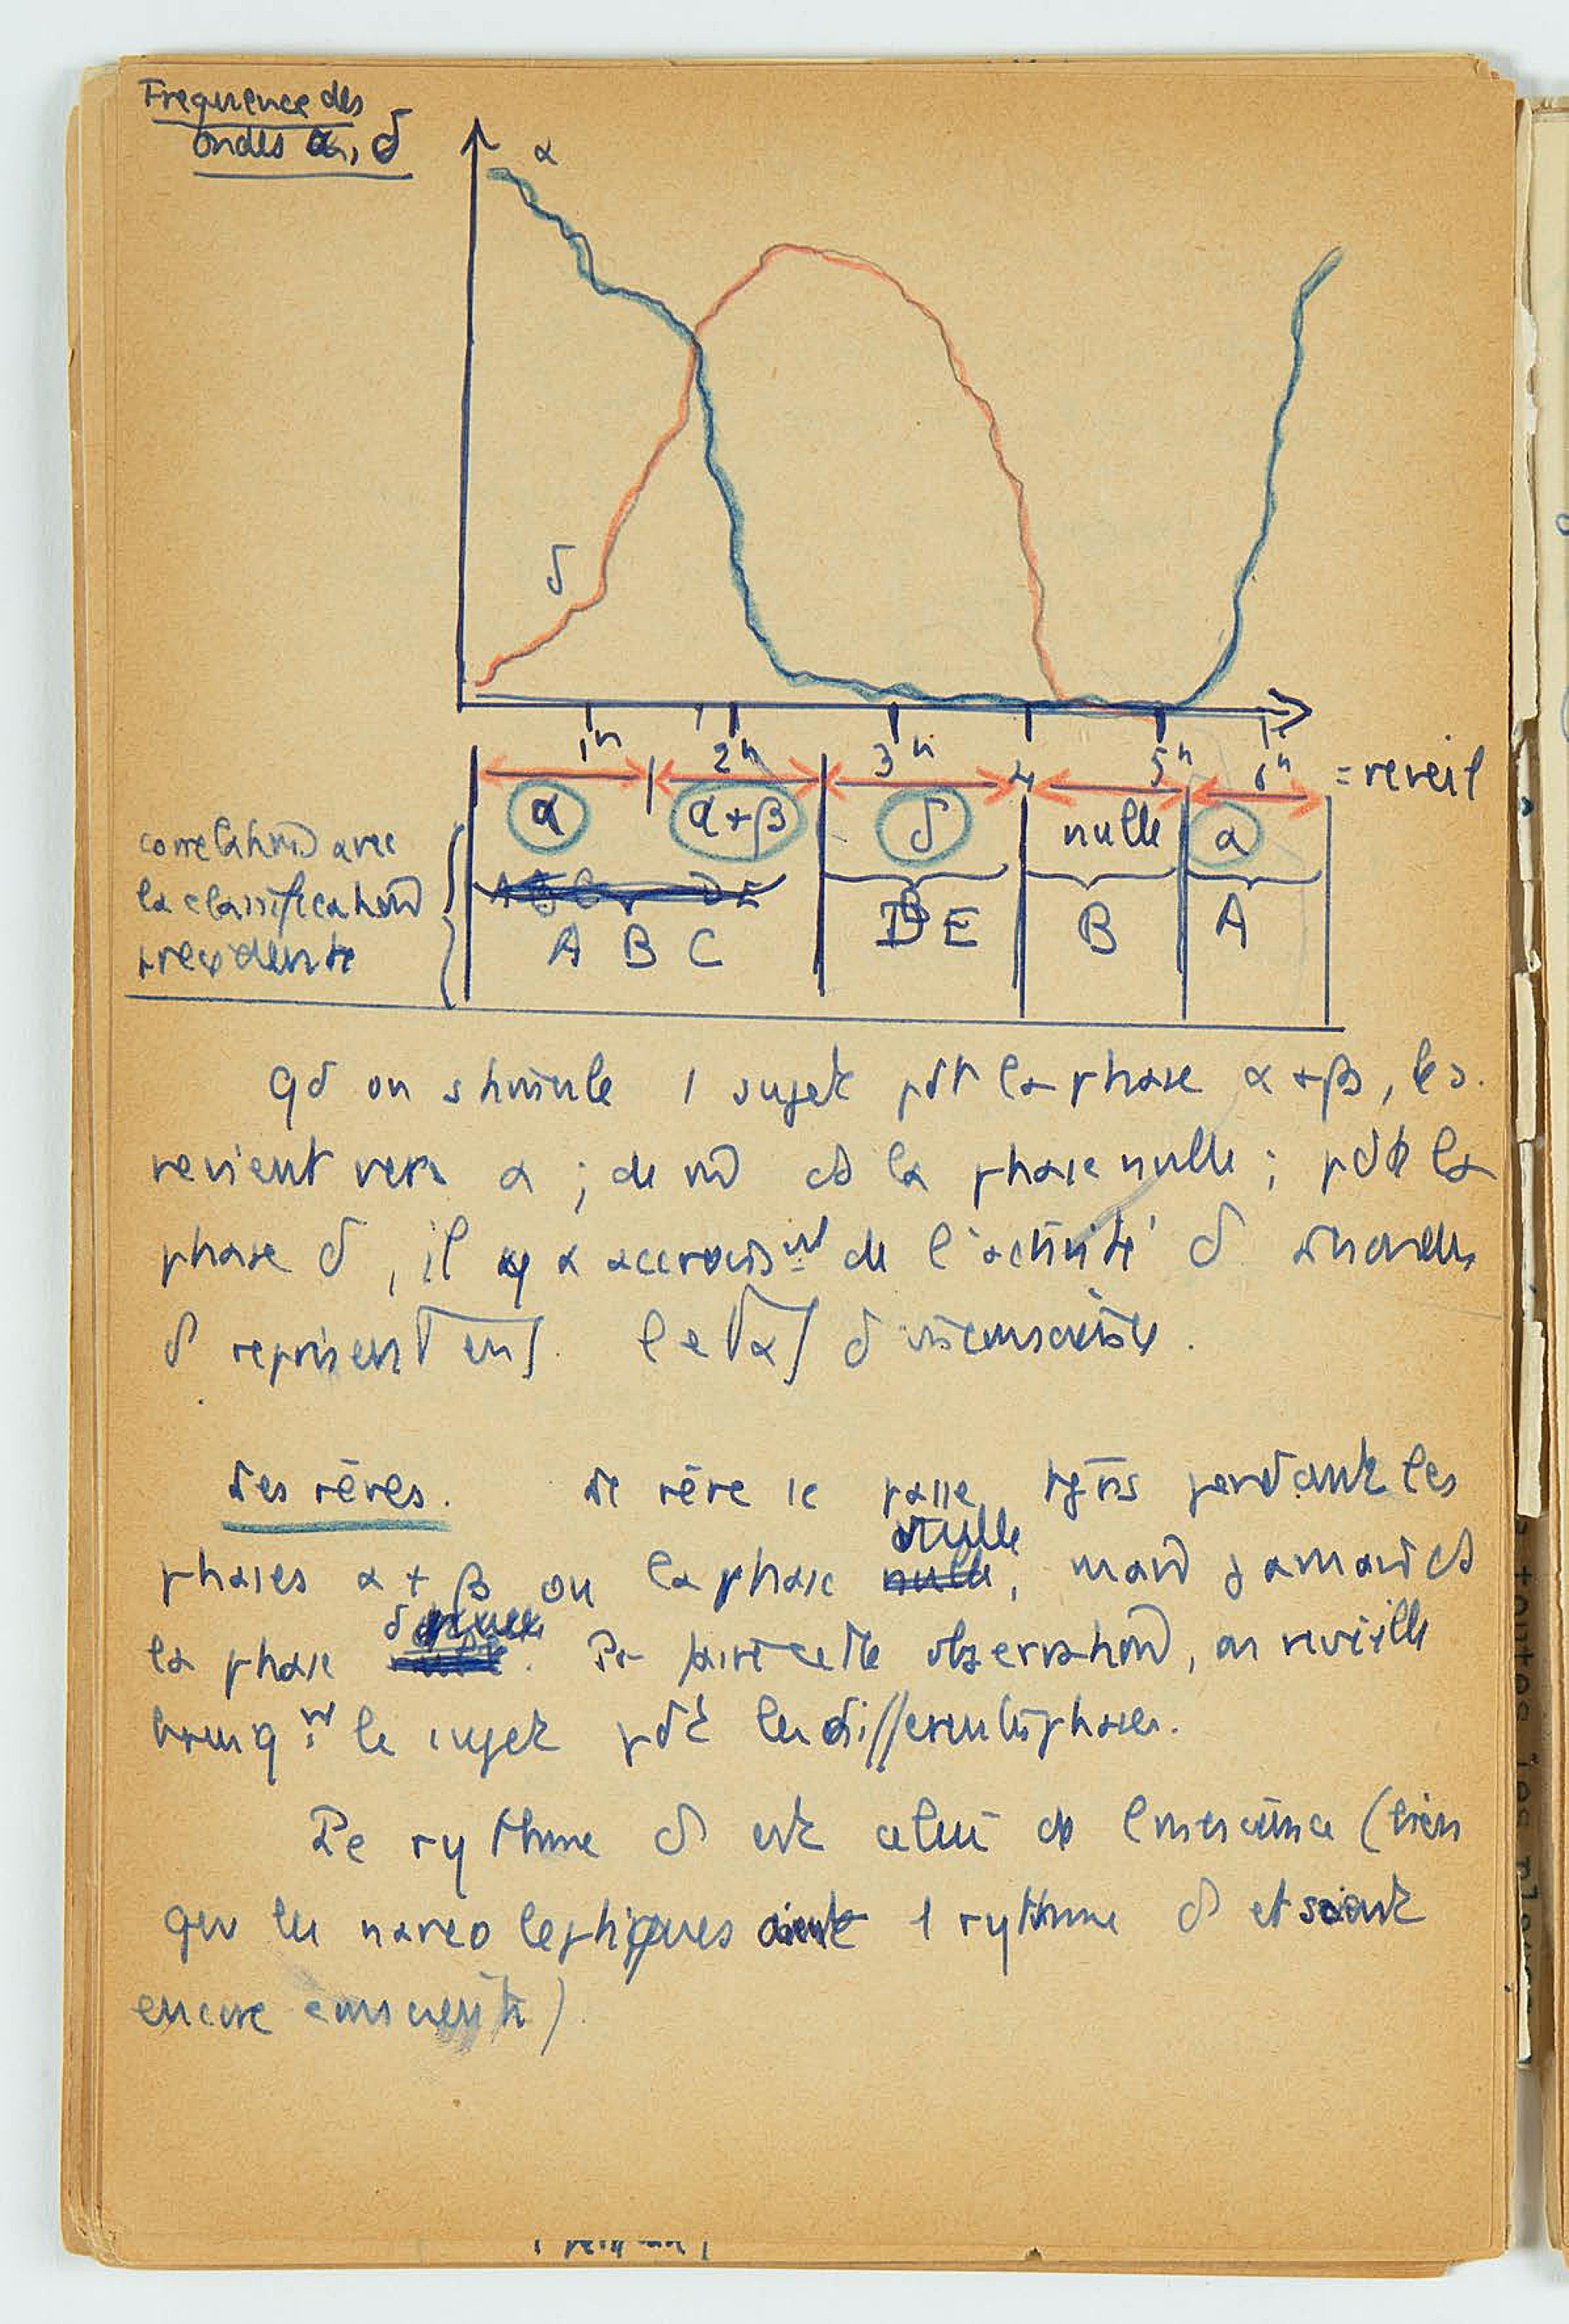 Frequence des
ondes α, δ
α
δ
1h 2h 3h 4 5h 6h = reveil
α α+β δ nulle α
correlation avec
la classification
precedente
A B C D E B A
Qd on stimule 1 sujet pdt la phase α+β, les
revient vers α ; de m̄ ds la phase nulle ; pdt la
phase δ, il y a accroisnt de l'activité δ
δ
Les rêves. Le rêve se passe pendant les
phases α + β ou la phase nulle, mais jamais ds
la phase δ. Pr faire cette observation, on reveille
brusqnt le sujet pdt les differentes phases.
Le rythme δ est celui de l'inconscience (bien
que les narcoleptiques aient 1 rythme δ et soient
encore conscients)